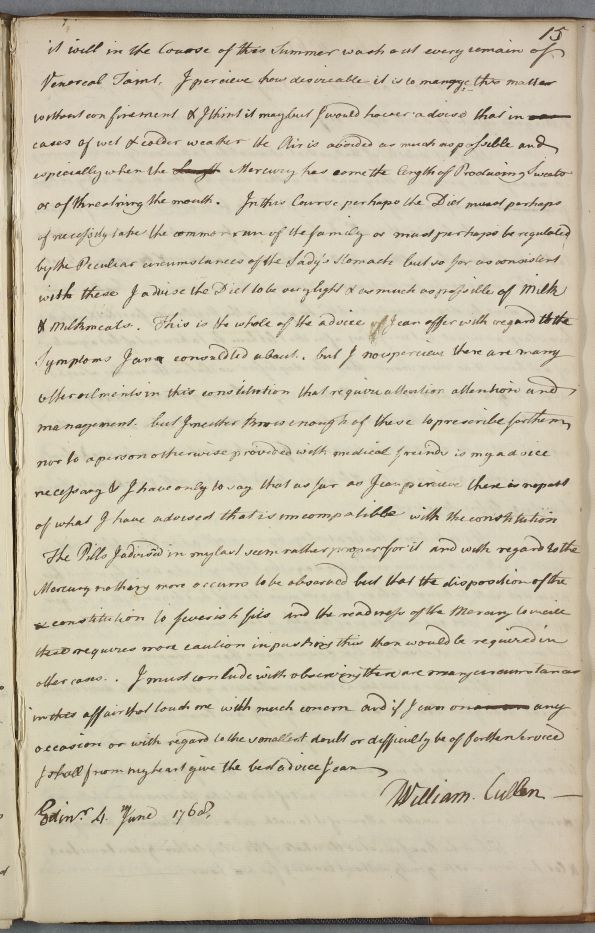 15
it will in the Course of this Summer wash out every remain of
Venereal Taint. I percieve how desireable it is to manage this matter
without confinement & I think it may but I would however advise that in
cases of wet & colder weather the Air is avoided as much as possible and
especially when the Mercury has come the length of Producing Sweats
or of threatning the mouth. In this Course perhaps the Diet must perhaps
of necessity take the common run of the family or must perhaps be regulated
by the Peculiar circumstances of the Lady's Stomach but so far as consistent
with these I advise the Diet to be very light & as much as possible of Milk
& Milkmeats. This is the whole of the advice I can offer with regard to the
Symptoms I am consulted about. but I now percieve there are many
other ailments in this constitution that require attention attention and
management. but I neither know enough of these to prescribe for them
nor to a person otherwise provided with medical freinds is my advice
necessary & I have only to say that as far as I can percieve there is no part
of what I have advised that is incompatible with the constitution
The Pills I advised in my last seem rather proper for it and with regard to the
Mercury nothing more occurrs to be observed but that the disposition of the
constitution to feverish fits and the readiness of the Mercury to excite
these requires more caution in pushing this than would be required in
other cases. I must conclude with observing there are many circumstances
in this affair that touch me with much concern and if I can on any
occasion or with regard to the smallest doubt or difficulty be of further Service
I shall from my heart give the best advice I can
William Cullen
Edinr. 4. June 1768.